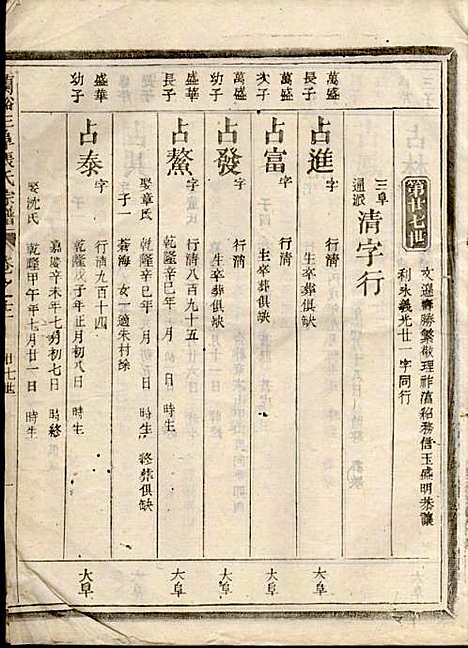 第廿七世
文遜壽勝繁敬理祚滇紹務信玉盛明恭讓
利永義光廿一字同行
三阜通派 清字行
萬盛長子 占進 字 行清 生卒葬俱缺 大阜
萬盛次子 占富 字 行清 生卒葬俱缺 大阜
萬盛幼子 占發 字 行清八百九十五 生卒葬俱缺 大阜
盛華長子 占鰲 字 行清 乾隆辛巳年 月 日 時生
娶章氏 乾隆辛巳年 月 日 時生 終葬俱缺
子一 蒼海 女一適朱村徐
大阜
盛華幼子 占泰 字 行清九百十四 乾隆戊子年正月初八日 時生
嘉慶辛未年七月初七日 時終
娶沈氏 乾隆甲午年七月廿一日 時生
大阜
張氏宗譜 卷之 廿七世